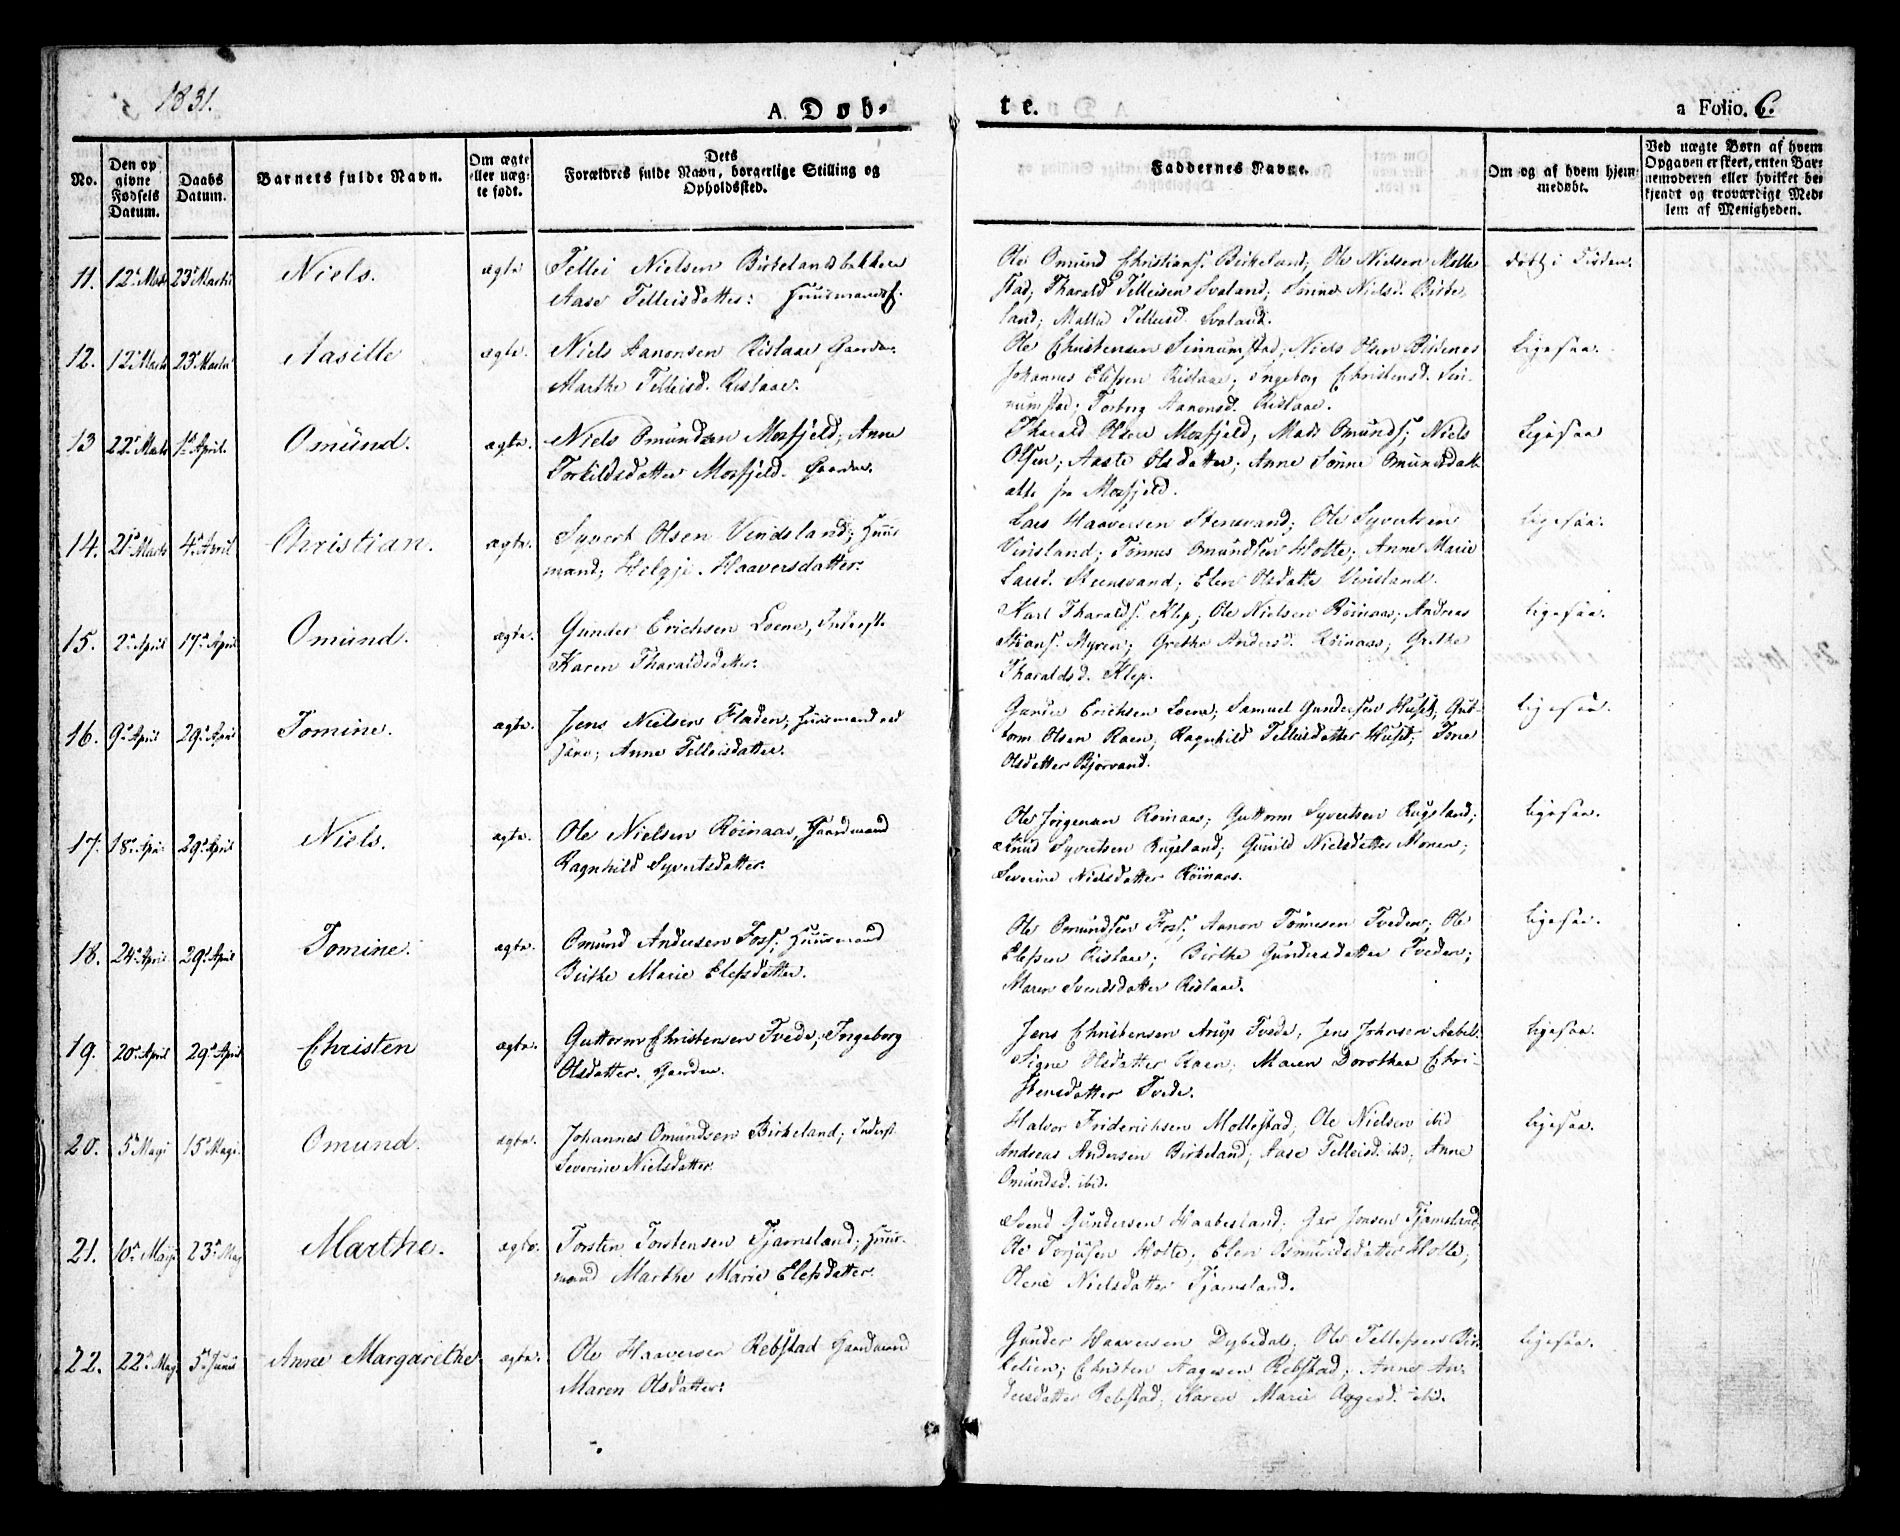 1831.
A. Døb-
te.
a Folio. 6.
No.
Den op
givne
Fødsels
Datum.
Daabs
Datum.
Barnets fulde Navn.
Om ægte
eller uæg-
te født.
Dets
Forældres fulde Navn, borgerlige Stilling og
Opholdssted.
Faddernes Navne.
Om og af hvem hjem-
medøbt.
Ved uægte Børn af hvem
Opgaven er skeet, enten Bar-
nemoderen eller hvilket be-
kjendt og troværdigt Med-
lem af Menigheden.
11. 12te Marts 23de Marts Niels. ægte
Tellei Nielsen Birkelandsbakken
Aase Telleisdatter: Huusmandsf.
Ole Omund Christians. Birkeland; Ole Nielsen Molle
stad; Tharald Telleisen Svaland; Tonne Nielsd. Birke
land; Malli Telleisd. Svaland.
døbt i Kirken.
12. 12te Marts 23de Marts Aasille ægte.
Niels Aanonsen Rislaae Gaardm.
Marthe Telleisd. Rislaae.
Ole Christensen Sinnumstad; Niels Olsen Birkenes
Johannes Elefsen Rislaae; Ingeborg Christensd. Sin-
numstad; Torborg Aanonsd. Rislaae.
Ligesaa.
13 22de Marts 1ste April. Omund. ægte.
Niels Omundsen Mosfjeld; Anne
Torkildsdatter Mosfjeld. Gaardm.
Tharald Olsen Mosfjeld; Mads Omunds.; Niels
Olsen; Aaste Olsdatter; Anne Tonne Omundsdatt
alle fra Mosfjeld.
Ligesaa
14. 21de Marts 4de April Christian. ægte.
Syvert Olsen Vindsland; Huus
mand; Helgje Haaversdatter:
Lars Haaversen Stensvand; Ole Syvertsen
Vinsland; Tønnes Omundsen Holte; Anne Marie
Larsd. Steensvand; Elen Olsdatter Vinsland.
Ligesaa.
15. 2den April 17de April Omund. ægte.
Gunder Erichsen Loene, Inderste
Karen Tharaldsdatter:
Karl Tharalds. Klep; Ole Nielsen Røinaas; Andreas
Myren; Grethe Andersd. Røinaas; Grethe
Tharaldsd. Klep.
Ligesaa.
16. 9de April 29de April Tomine. ægte.
Jens Nielsen Fladen; Huusmand ved
Anne Telleisdatter.
Gunder Erichsen Loene; Samuel Gundersen Huset; Gut-
torm Olsen Raen; Ragnhild Telleisdatter Huset; Tone
Olsdatter Bjorvand.
Ligesaa.
17. 18de Apr. 29de April Niels. ægte.
Ole Nielsen Røinaas, Gaardmand
Ragnhild Syvertsdatter.
Ole Jørgensen Røinaas; Guttorm Syvertsen Rugsland;
Knud Syvertsen Rugsland; Gunild Nielsdatter Monen;
Severine Nielsdatter Røinaas.
Ligesaa.
18. 24de April 29de April Tomine. ægte.
Omund Andersen Foss; Huusmand
Birthe Marie Elefsdatter.
Ole Omundsen Foss; Aanon Tønnesen Tveden; Ole
Elefsen Rislaae; Birthe Gundersdatter Tveden;
Maren Svendsdatter Rislaae.
Ligesaa.
19. 20de April 29de April Christen ægte.
Guttorm Christensen Tvede; Ingeborg
Olsdatter. Gaardm.
Jens Christensen Tvede; Jens Johnsen
Signe Olsdatter Raen; Maren Dorothea Chri-
stensdatter Tvede.
Ligesaa.
20. 5te Maji 15de Maji. Omund. ægte.
Johannes Omundsen Birkeland; Inderst
Severine Nielsdatter.
Halvor Friderichsen Mollestad; Ole Nielsen ibid
Andreas Andersen Birkeland; Aase Telleisd. ibid; Anne
Omundsd. ibid.
Ligesaa.
21. 10de Maji 23de Maj Marthe. ægte.
Torsten Torstensen Tjamsland; Huus-
mand Marthe Marie Elefsdatter.
Svend Gundersen Haabesland; Jonsen Tjamsland
Ole Torjusen Holte; Elen Osmundsdatter Holte;
Olene Nielsdatter Tjamsland.
22. 22de Maj 5te Junii Anne Margarethe ægte.
Ole Haaversen Rebstad Gaardmand
Maren Olsdatter:
Gunder Haaversen Dybedal; Ole Tellefsen Bir-
kelien; Christen Aagesen Rebstad; Anne An-
dersdatter Rebstad; Karen Marie Aagesd. ibid.
Ligesaa.